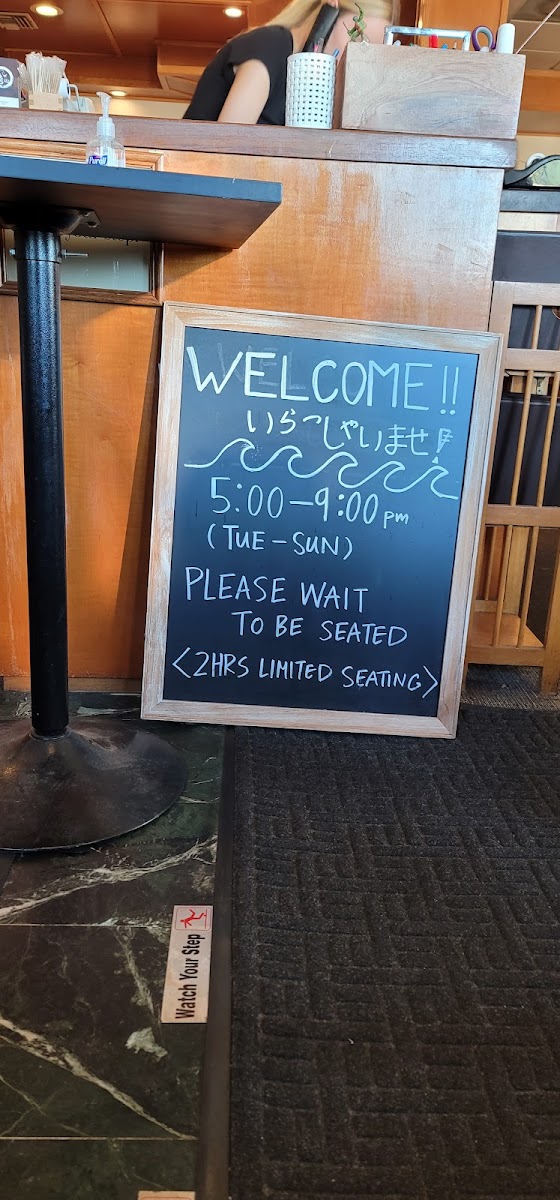 PURELL
WELCOME!!
いらっしゃいませ!
5:00-9:00 pm
(TUE-SUN)
PLEASE WAIT
TO BE SEATED
<2HRS LIMITED SEATING>
Watch Your Step